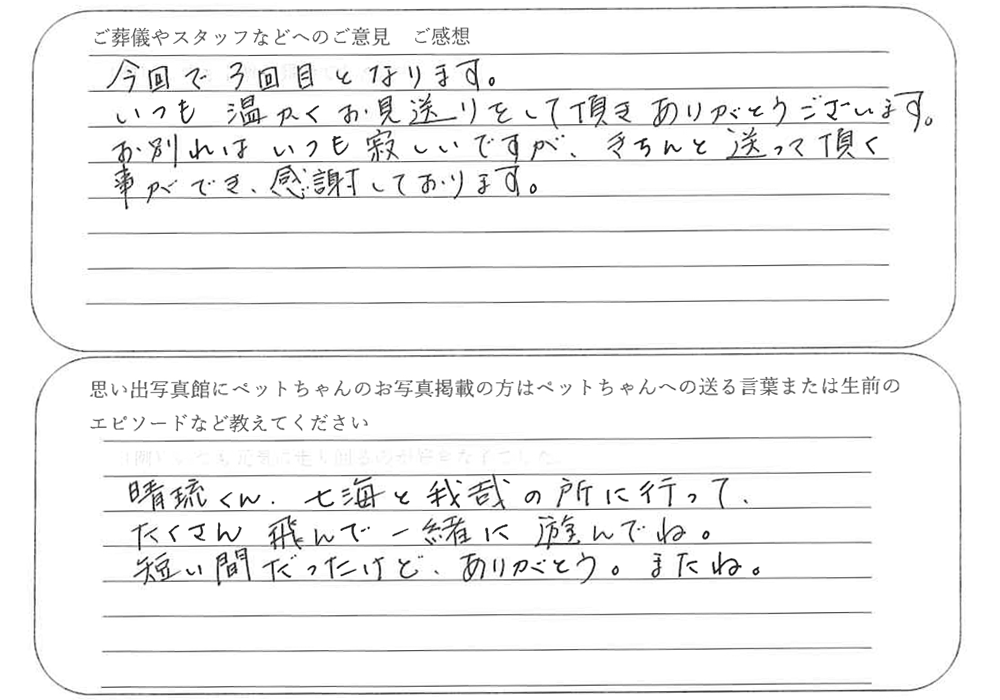 ご葬儀やスタッフなどへのご意見　ご感想
今回で3回目となります。
いつも 温かくお見送りをして頂き ありがとうございます。
お別れは いつも 寂しいですが、きちんと 送って 頂く
事ができ、感謝しております。
思い出写真館にペットちゃんのお写真掲載の方はペットちゃんへの送る言葉または生前の
エピソードなど教えてください
(例)いつも元気に走り回るのが好きな子でした。
晴琉くん、七海と我哉の所に行って、
たくさん 飛んで 一緒に 遊んでね。
短い間だったけど、ありがとう。またね。